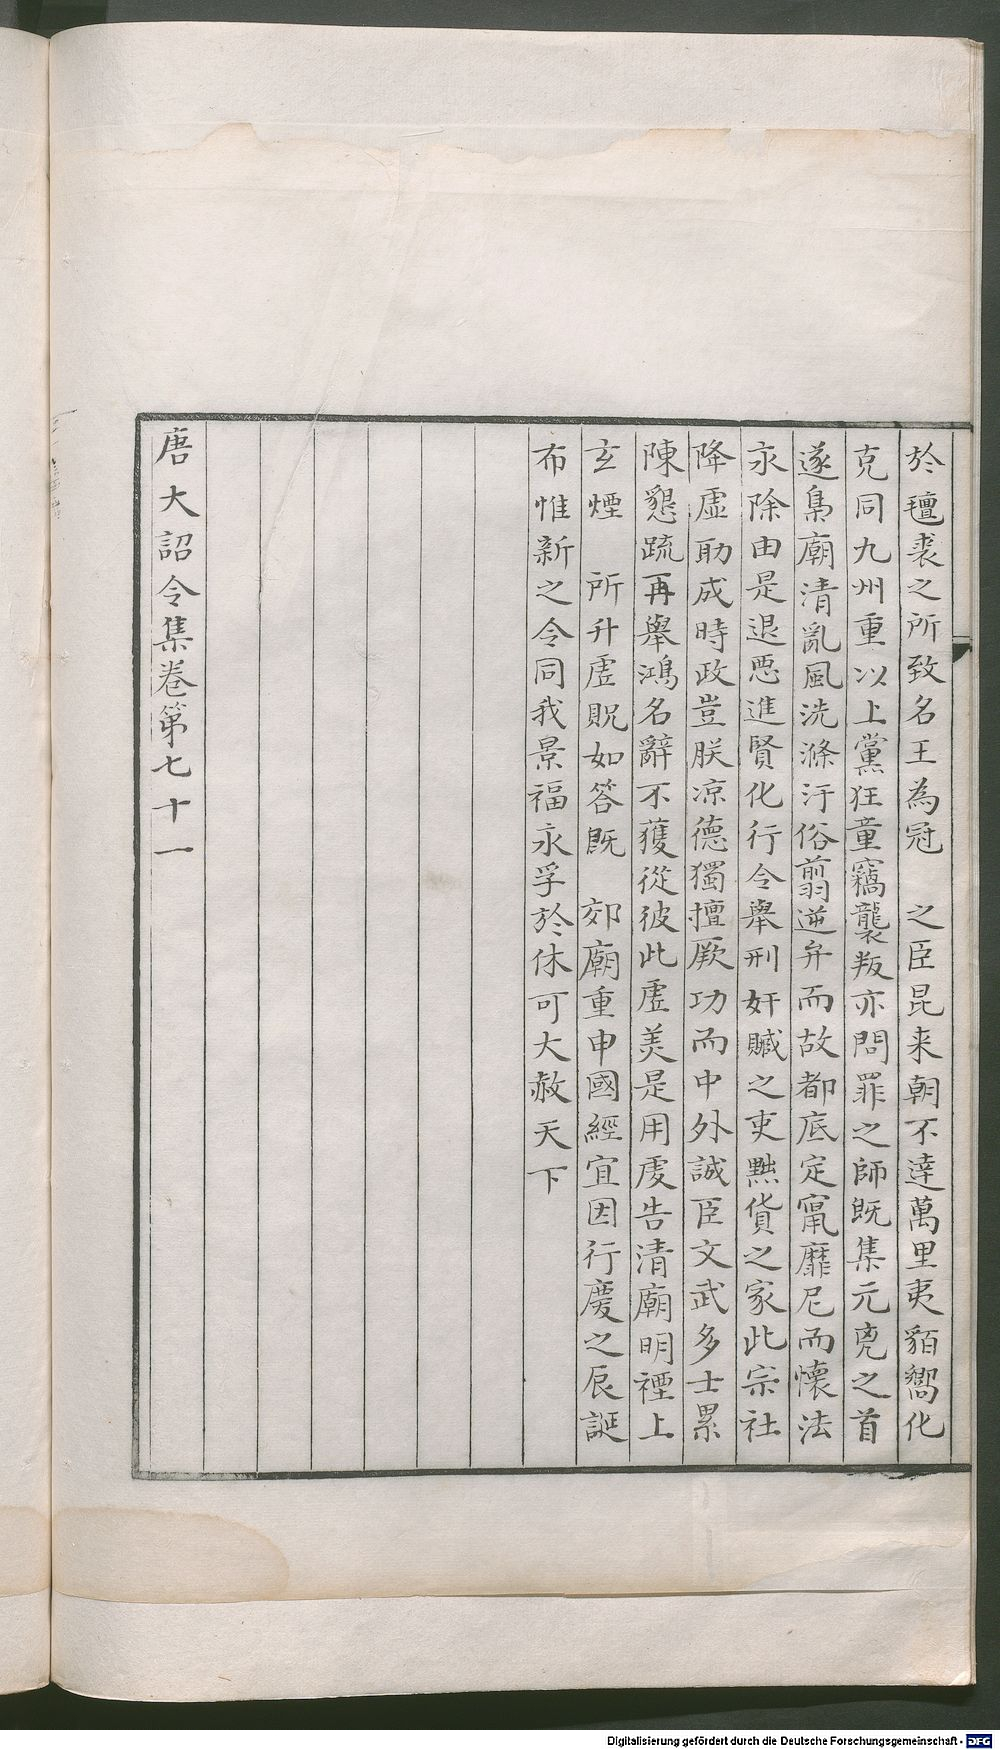 於氊裘之所致名王為冠　之臣昆来朝不逹萬里夷貊嚮化
克同九州重以上黨狂童竊襲叛亦問罪之師既集元兇之首
遂梟廟清亂風洗滌汙俗翦逆弁而故都底定甯靡尼而懷法
永除由是退惡進賢化行令舉刑奸贓之吏黜貨之家此宗社
降虛助成時政豈朕凉德獨擅厥功而中外誠臣文武多士累
陳懇疏再舉鴻名辭不獲從彼此虛美是用虔告清廟明禋上
玄煙　所升虛貺如答既　郊廟重申國經宜因行慶之辰誕
布惟新之令同我景福永孚於休可大赦天下
唐大詔令集卷第七十一
Digitalisierung gefördert durch die Deutsche Forschungsgemeinschaft - DFG